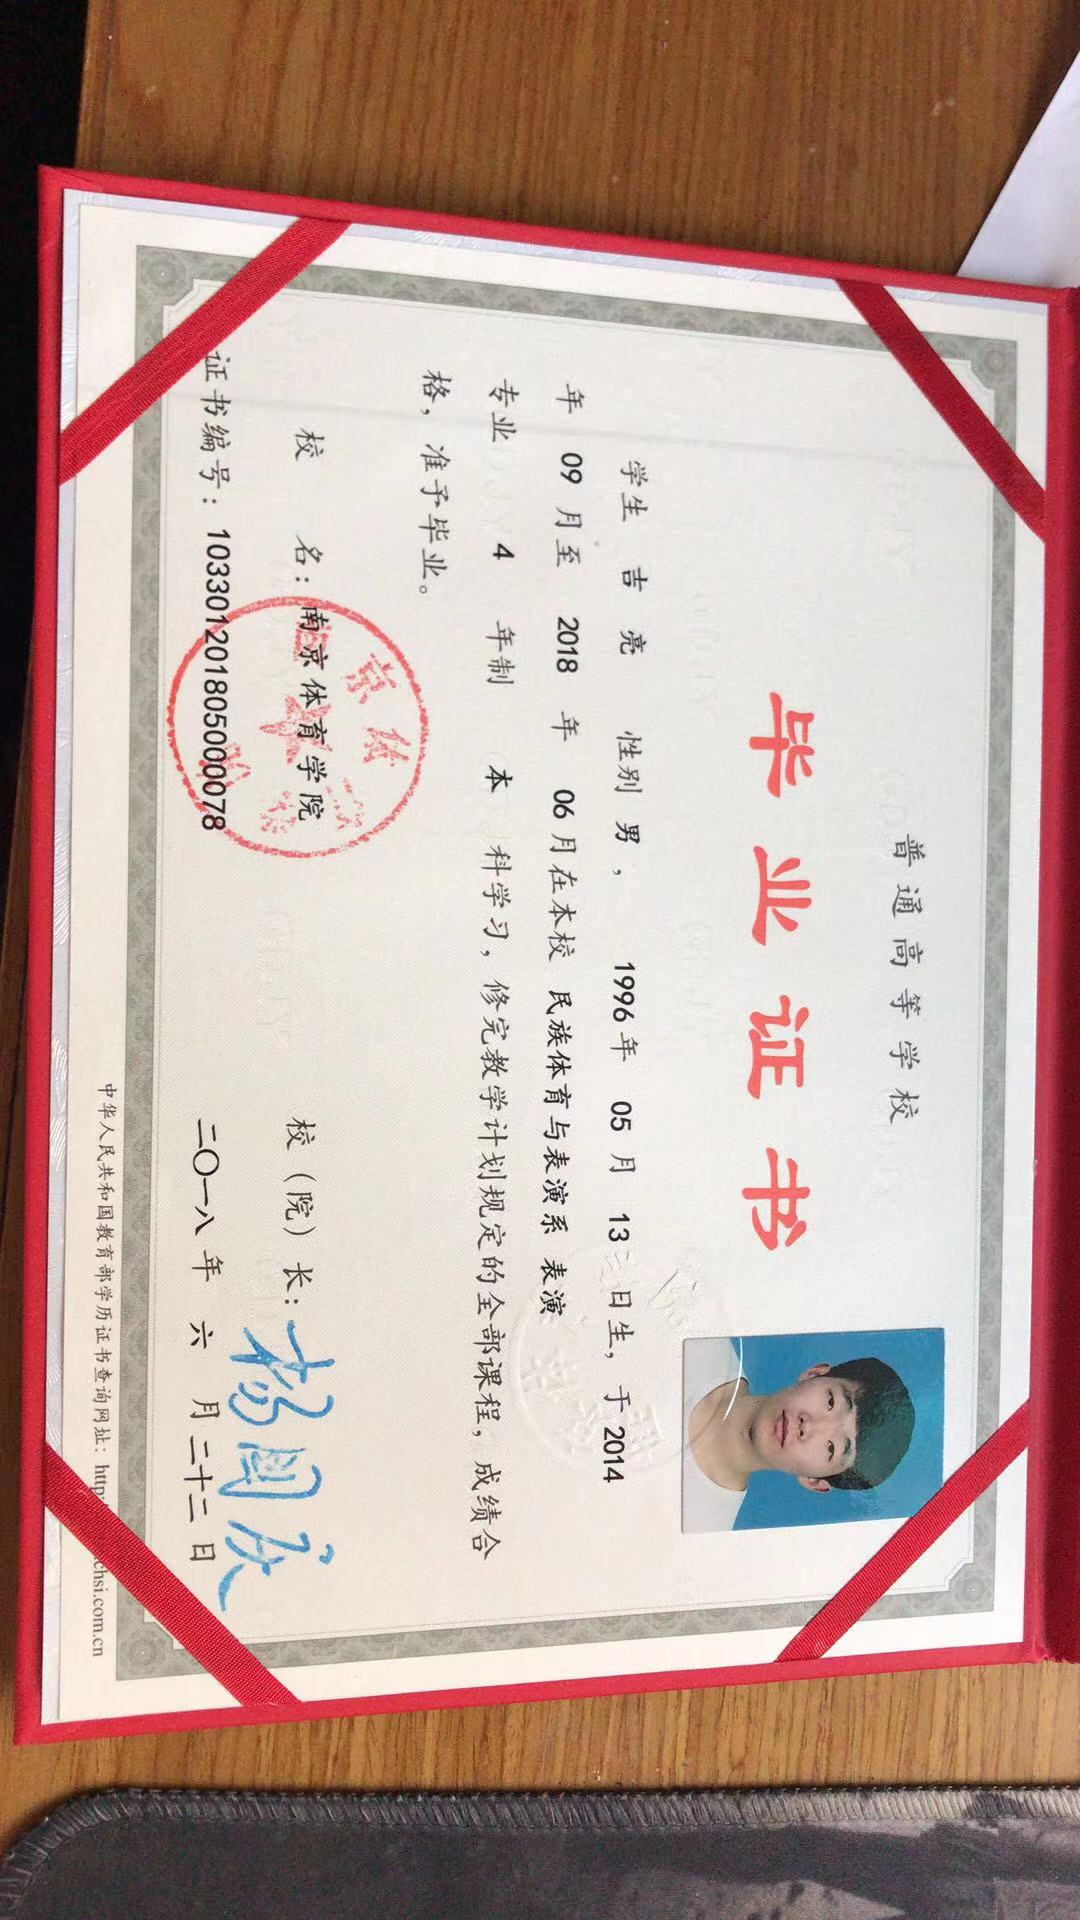 普通高等学校
毕业证书
学生 吉 亮 性别 男， 1996 年 05 月 13 日生，于 2014
年 09 月至 2018 年 06 月在本校 民族体育与表演系 表演
专业 4 年制 本 科学习，修完教学计划规定的全部课程，成绩合
格，准予毕业。
校 名：南京体育学院 校（院）长：杨国庆
证书编号：103301201805000078 二〇一八年 六 月二十二日
中华人民共和国教育部学历证书查询网址：http: chsi.com.cn